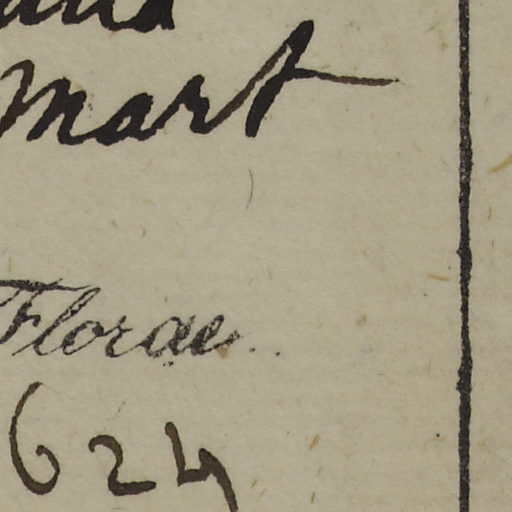 Mart
Florae
624